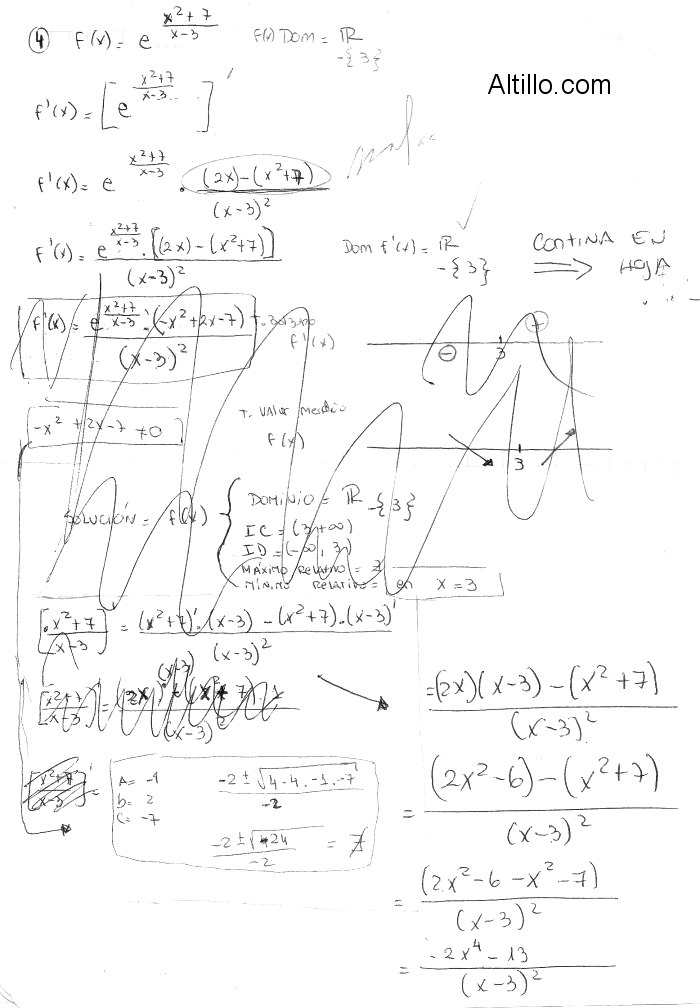 ④ f(x) = e^((x²+7)/(x-3)) f(x) Dom = ℝ -{3}
Altillo.com
f'(x) = [e^((x²+7)/(x-3))]'
f'(x) = e^((x²+7)/(x-3)) · ((2x)-(x²+7))/(x-3)²
f'(x) = (e^((x²+7)/(x-3)) · [(2x)-(x²+7)])/(x-3)²
Dom f'(x) = ℝ -{3}
CONTINA EN
HOJA
f'(x) = (e^((x²+7)/(x-3)) · (-x²+2x-7))/(x-3)²
f'(x)
⊖ 3 ⊕
-x² + 2x - 7 ≠ 0
T. Valor medio
f(x)
3
SOLUCIÓN = f(x)
DOMINIO = ℝ -{3}
IC = (3,+∞)
ID = (-∞, 3)
MÁXIMO RELATIVO = ∄
MÍNIMO RELATIVO = en x = 3
[(x²+7)/(x-3)]' = ((x²+7)'·(x-3) - (x²+7)·(x-3)')/(x-3)²
= ((2x)(x-3) - (x²+7))/(x-3)²
A = -1
b = 2
c = -7
(-2 ± √(4-4·-1·-7))/-2
(-2 ± √(-24))/-2 = ∄
= ((2x²-6) - (x²+7))/(x-3)²
= (2x²-6-x²-7)/(x-3)²
= (-2x⁴-13)/(x-3)²